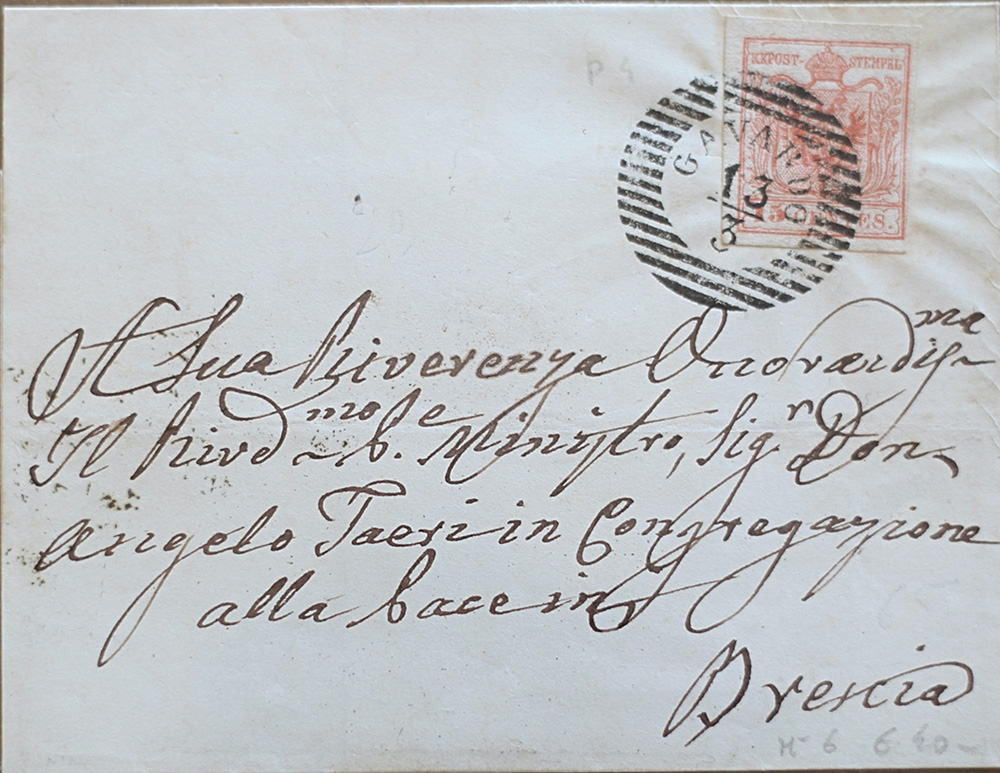 P 4
KKPOST-STEMPEL
GAVARDO
13
3
15 CENTES.
A Sua Riverenza Onorandis^ma
Il Rived^mo P.^e Ministro, Sig^r Don
Angelo Taeri in Congregazione
alla Pace in
Brescia
N 6 6.40-